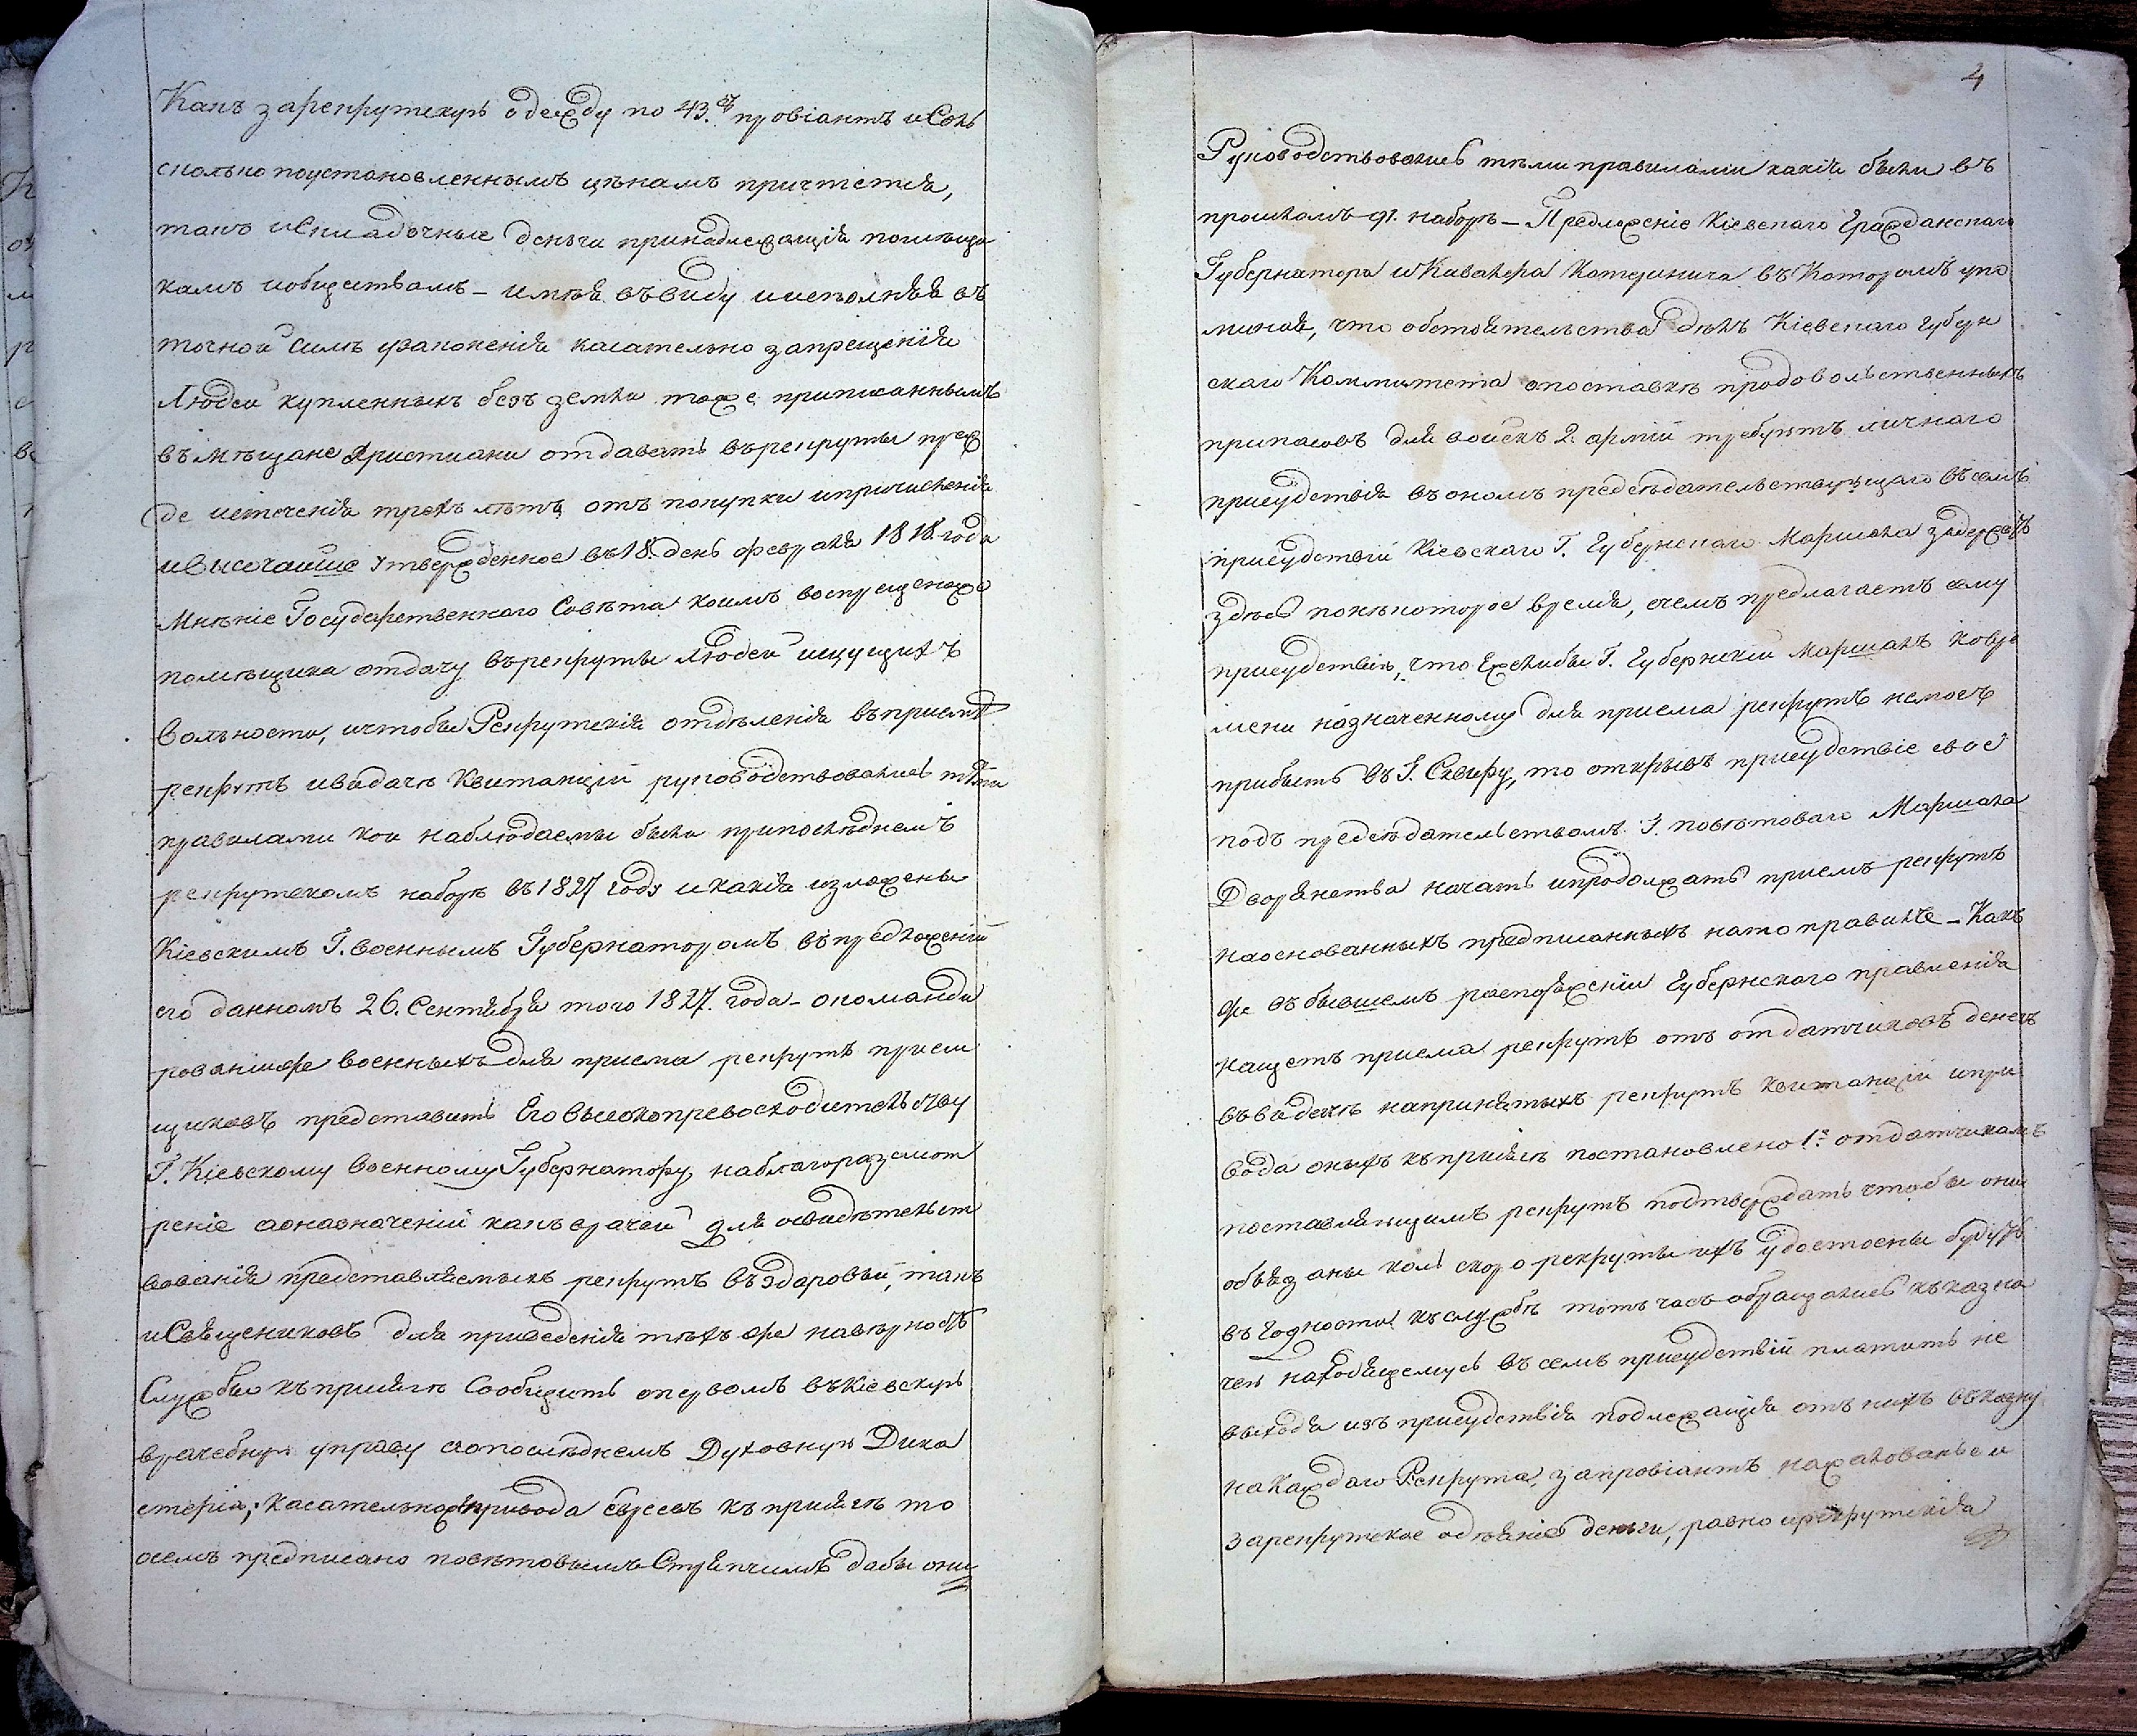 Какъ зарекрутскую одежду по 43. провіантъ и Соль
сколько поустановленнымъ цѣнамъ причтется,
такъ искладочные деньги принадлежащія помѣщи
камъ иобществамъ – имѣя ввиду иисполняя въ
точной силѣ узаконенія касательно запрещенія
Людей купленныхъ безъ земли тоже приписанныхъ
въ мѣщане Христиани отдавать въ рекруты преж
де истеченія трехъ лѣтъ отъ покупки ипричисленія
иВысочайше утвержденное въ 18. день февраля 1818 года
Мнѣніе Государственнаго Совѣта коимъ воспрещено
помѣщика отдачу врекруты Людей ищущихъ
вольности, ичтобы Рекрутскія отдѣленія въ приемѣ
рекрутъ ивыдачѣ Квитанцій руководствовались тѣми
правилами кои наблюдаемы были припослѣднемъ
рекрутскомъ наборѣ въ 1827 году икакія изложены
Кіевскимъ Г. военнымъ Губернаторомъ въ предложеніи
его данномъ 26. Сентября того 1827. года – окоманди
рованіиже военныхъ для приема рекрутъ пріем
щиковъ представить Его Высокопревосходительству
Г. Кіевскому военному Губернатору, наблагоразсмот
реніе аоназначеніи какъ врачей для освидѣтельст
вованія представляемыхъ рекрутъ въ здоровьи, такъ
иСвященниковъ для приведенія тѣхъ же навѣрность
Службы къ присягѣ Сообщить опервомъ въ Кіевскую
врачебную управу аопослѣднемъ Духовную Дика
стерію; Касательножъ привода евреевъ къ присягѣ то
осемъ предписано повѣтовымъ Стряпчимъ дабы они
4
Руководствовались тѣми правилами какія были въ
прошломъ 91. наборѣ – Предложеніе Кіевскаго Гражданскаго
Губернатора иКавалера Катеринича въ Которомъ упо
миная, что обстоятельства дѣлъ Кіевскаго Губерн
скаго Коммитета опоставкѣ продовольственныхъ
припасовъ для войскъ 2. арміи требуютъ личнаго
присудствія въ ономъ предсѣдательствующаго въ семъ
присудствіи Кіевскаго Г. Губернскаго Маршала задержатъ
здѣсь понѣкоторое время, очемъ предлагаетъ сему
присудствію, что Ежелибы Г. Губернскій Маршалъ ковре
мени назначенному для приема рекрутъ немогъ
прибыть въ Г. Сквиру, то открывъ присудствіе свое
подъ предсѣдательствомъ Г. повѣтоваго Маршала
Дворянства начать ипродолжать приемъ рекрутъ
наоснованныхъ предписанныхъ нато правилъ – Какъ
же въ бывшемъ распоряженіи Губернскаго правленія
нащетъ приема рекрутъ отъ отдатчиковъ денегъ
въвыдачѣ напринятыхъ рекрутъ Квитанцій ипри
вода оныхъ къ присягѣ постановлено 1е. отдатчикамъ
поставляющимъ рекрутъ подтверждать чтобы они
обязаны коль скоро рекруты ихъ удостоены будутъ
въ годности къ службѣ тотъ часъ обращались къ казна
чею находящемусь въ семъ присудствіи платить не
выходя изъ присудствія подлежащія отъ нихъ въ казну
наКаждаго Рекрута, запровіантъ нажалованьеи
зарекрутское одѣяніе деньги, равно ирекрутскія